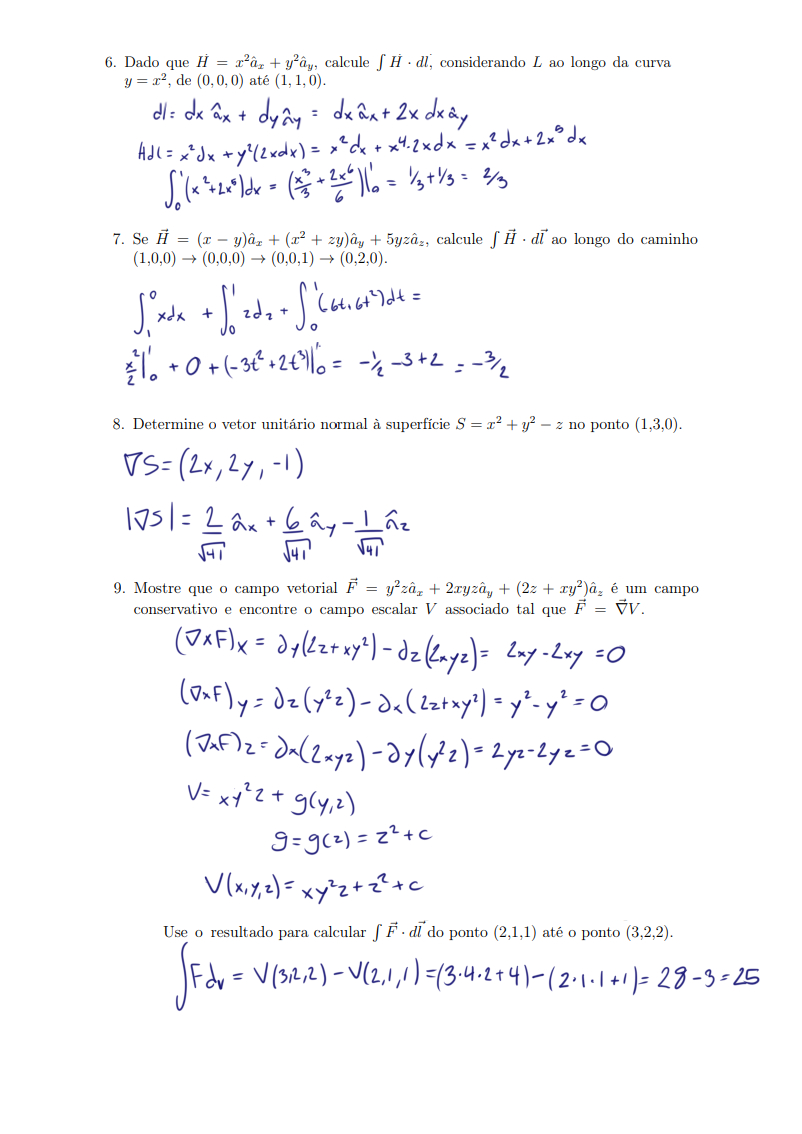 6. Dado que H⃗ = x²âₓ + y²â_y, calcule ∫ H⃗ · dl⃗, considerando L ao longo da curva
y = x², de (0,0,0) até (1,1,0).
dl = dx âx + dy ây = dx âx + 2x dx ây
Hdl = x²dx + y²(2xdx) = x²dx + x⁴·2xdx = x²dx + 2x⁵dx
∫₀¹(x²+2x⁵)dx = (x³/3 + 2x⁶/6)|₀¹ = 1/3 + 1/3 = 2/3
7. Se H⃗ = (x − y)âₓ + (x² + zy)â_y + 5yzâ_z, calcule ∫ H⃗ · dl⃗ ao longo do caminho
(1,0,0) → (0,0,0) → (0,0,1) → (0,2,0).
∫₁⁰ xdx + ∫₀¹ zdz + ∫₀¹ (-6t+6t²)dt =
x²/2|₀¹ + 0 + (-3t² + 2t³)|₀¹ = -1/2 -3+2 = -3/2
8. Determine o vetor unitário normal à superfície S = x² + y² − z no ponto (1,3,0).
∇S = (2x, 2y, -1)
|∇S| = 2/√41 âx + 6/√41 ây - 1/√41 âz
9. Mostre que o campo vetorial F⃗ = y²zâₓ + 2xyzâ_y + (2z + xy²)â_z é um campo
conservativo e encontre o campo escalar V associado tal que F⃗ = ∇⃗V.
(∇xF)x = ∂y(2z+xy²) - ∂z(2xyz) = 2xy - 2xy = 0
(∇xF)y = ∂z(y²z) - ∂x(2z+xy²) = y² - y² = 0
(∇xF)z = ∂x(2xyz) - ∂y(y²z) = 2yz - 2yz = 0
V = xy²z + g(y,z)
g = g(z) = z² + c
V(x,y,z) = xy²z + z² + c
Use o resultado para calcular ∫ F⃗ · dl⃗ do ponto (2,1,1) até o ponto (3,2,2).
∫Fdv = V(3,2,2) - V(2,1,1) = (3·4·2+4) - (2·1·1+1) = 28 - 3 = 25